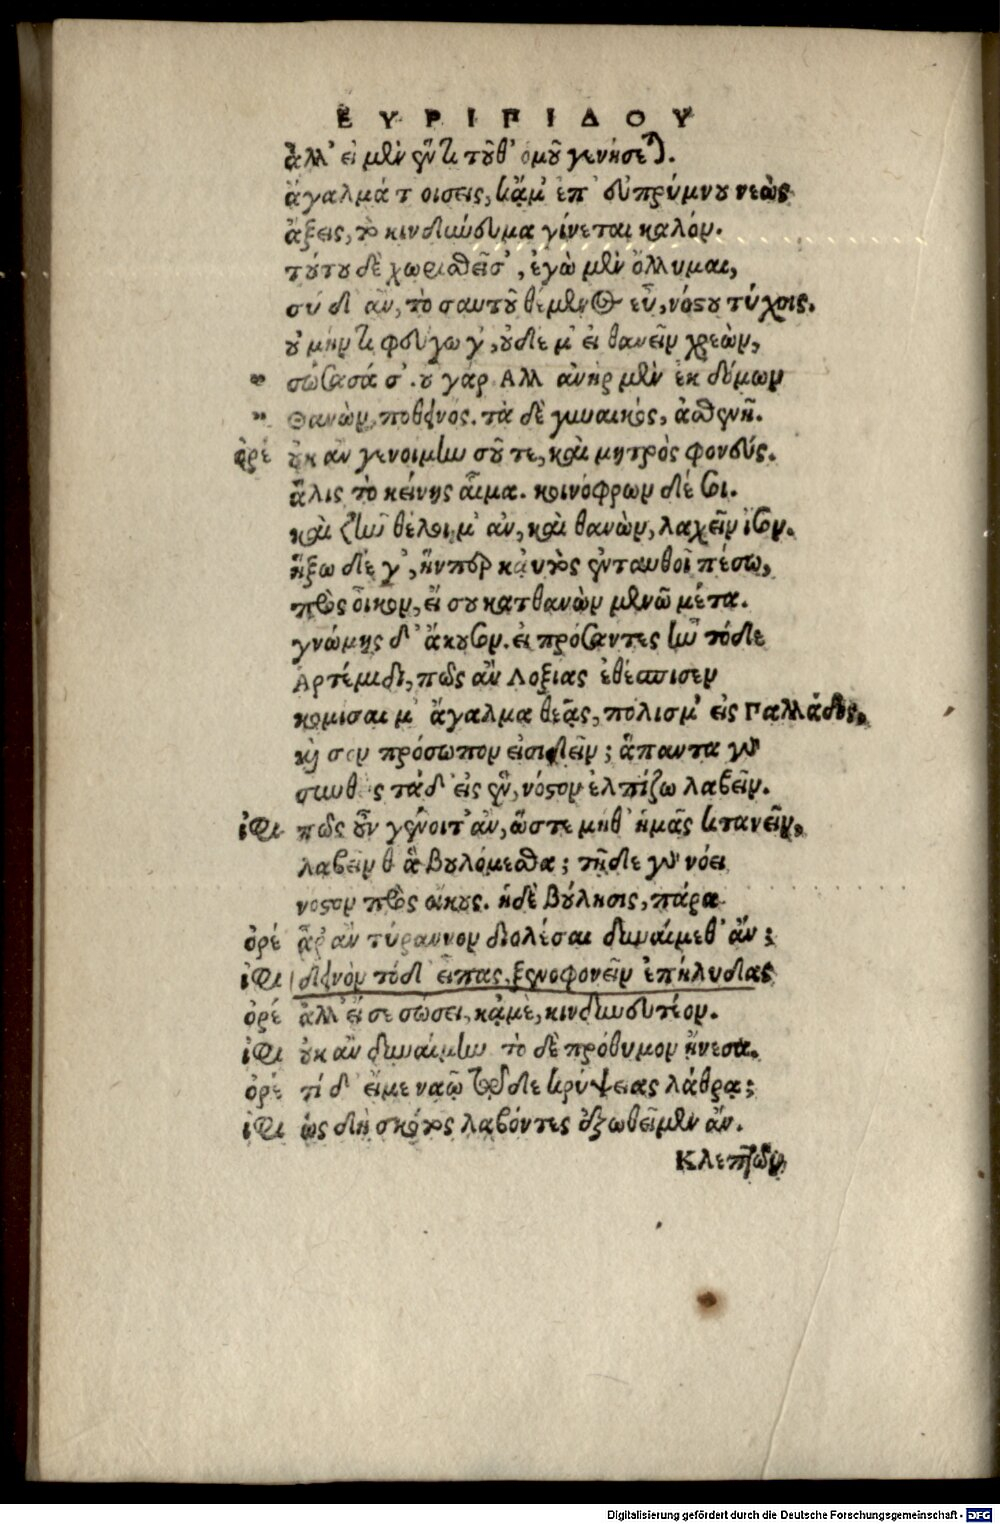 ΕΥΡΙΠΙΔΟΥ
ἀλλ' εἰ μὲν ἕν τι τοῦθ' ὁμοῦ γενήσεται.
ἄγαλμά τ' οἴσεις, κἄμ' ἐπ' εὐπρύμνου νεὼς
ἄξεις, τὸ κινδύνευμα γίνεται καλόν.
τούτου δὲ χωρισθεῖσ', ἐγὼ μὲν ὄλλυμαι,
σύ δ' ἂν, τὸ σαυτοῦ θέμενος εὖ, νόστου τύχοις.
οὐ μήν τι φεύγω γ', οὐδέ μ' εἰ θανεῖν χρεὼν,
" σώσασά σ'. οὐ γάρ Ἀλλ ἀνὴρ μὲν ἐκ δόμων
" Θανὼν, ποθεινός. τὰ δὲ γυναικός, ἀσθενῆ.
ὀρέ οὐκ ἂν γενοίμην σοῦ τε, καὶ μητρὸς φονεύς.
ἅλις τὸ κείνης αἷμα. κοινόφρων δέ σοι.
καὶ ζῆν θέλοιμ' ἂν, καὶ θανὼν, λαχεῖν ἴσον.
ἥξω δέ γ', ἤνπερ καὐτὸς ἐνταυθοῖ πέσω,
πρὸς οἶκον, εἴ σου κατθανὼν μενῶ μέτα.
γνώμης δ' ἄκουσον. εἰ πρόσαντες ἦν τόδε
Ἀρτέμιδι, πῶς ἂν Λοξίας ἐθέσπισεν
κομίσαι μ' ἄγαλμα θεᾶς, πόλισμ' εἰς Παλλάδος,
καὶ σὸν πρόσωπον εἰσιδεῖν; ἅπαντα γὰρ
συνθεὶς τάδ' εἰς ἓν, νόστον ἐλπίζω λαβεῖν.
ἰφι πῶς οὖν γένοιτ' ἂν, ὥστε μήθ' ἡμᾶς κτανεῖν,
λαβεῖν θ' ἃ βουλόμεσθα; τῇδε γὰρ νόει
νόστον πρὸς οἴκους. ἡδὲ βούλησις, πάρα
ὀρέ ἆρ' ἂν τύραννον διολέσαι δυναίμεθ' ἄν;
ἰφι δεινὸν τόδ' εἶπας, ξενοφονεῖν ἐπήλυδας
ὀρέ ἀλλ' εἴ σε σώσει, κἀμὲ, κινδυνευτέον.
ἰφι οὐκ ἂν δυναίμην τὸ δὲ πρόθυμον ᾔνεσα.
ὀρέ τί δ' εἴ με ναῷ τῷδε κρύψειας λάθρα;
ἰφι ὡς δὴ σκότος λαβόντες ἐξωθεῖμεν ἄν.
Κλεπτῶν
Digitalisierung gefördert durch die Deutsche Forschungsgemeinschaft - DFG